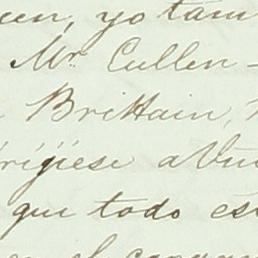 yo tam
Mr. Cullen -
Brittain,
rigiese a Vu
que todo es
el